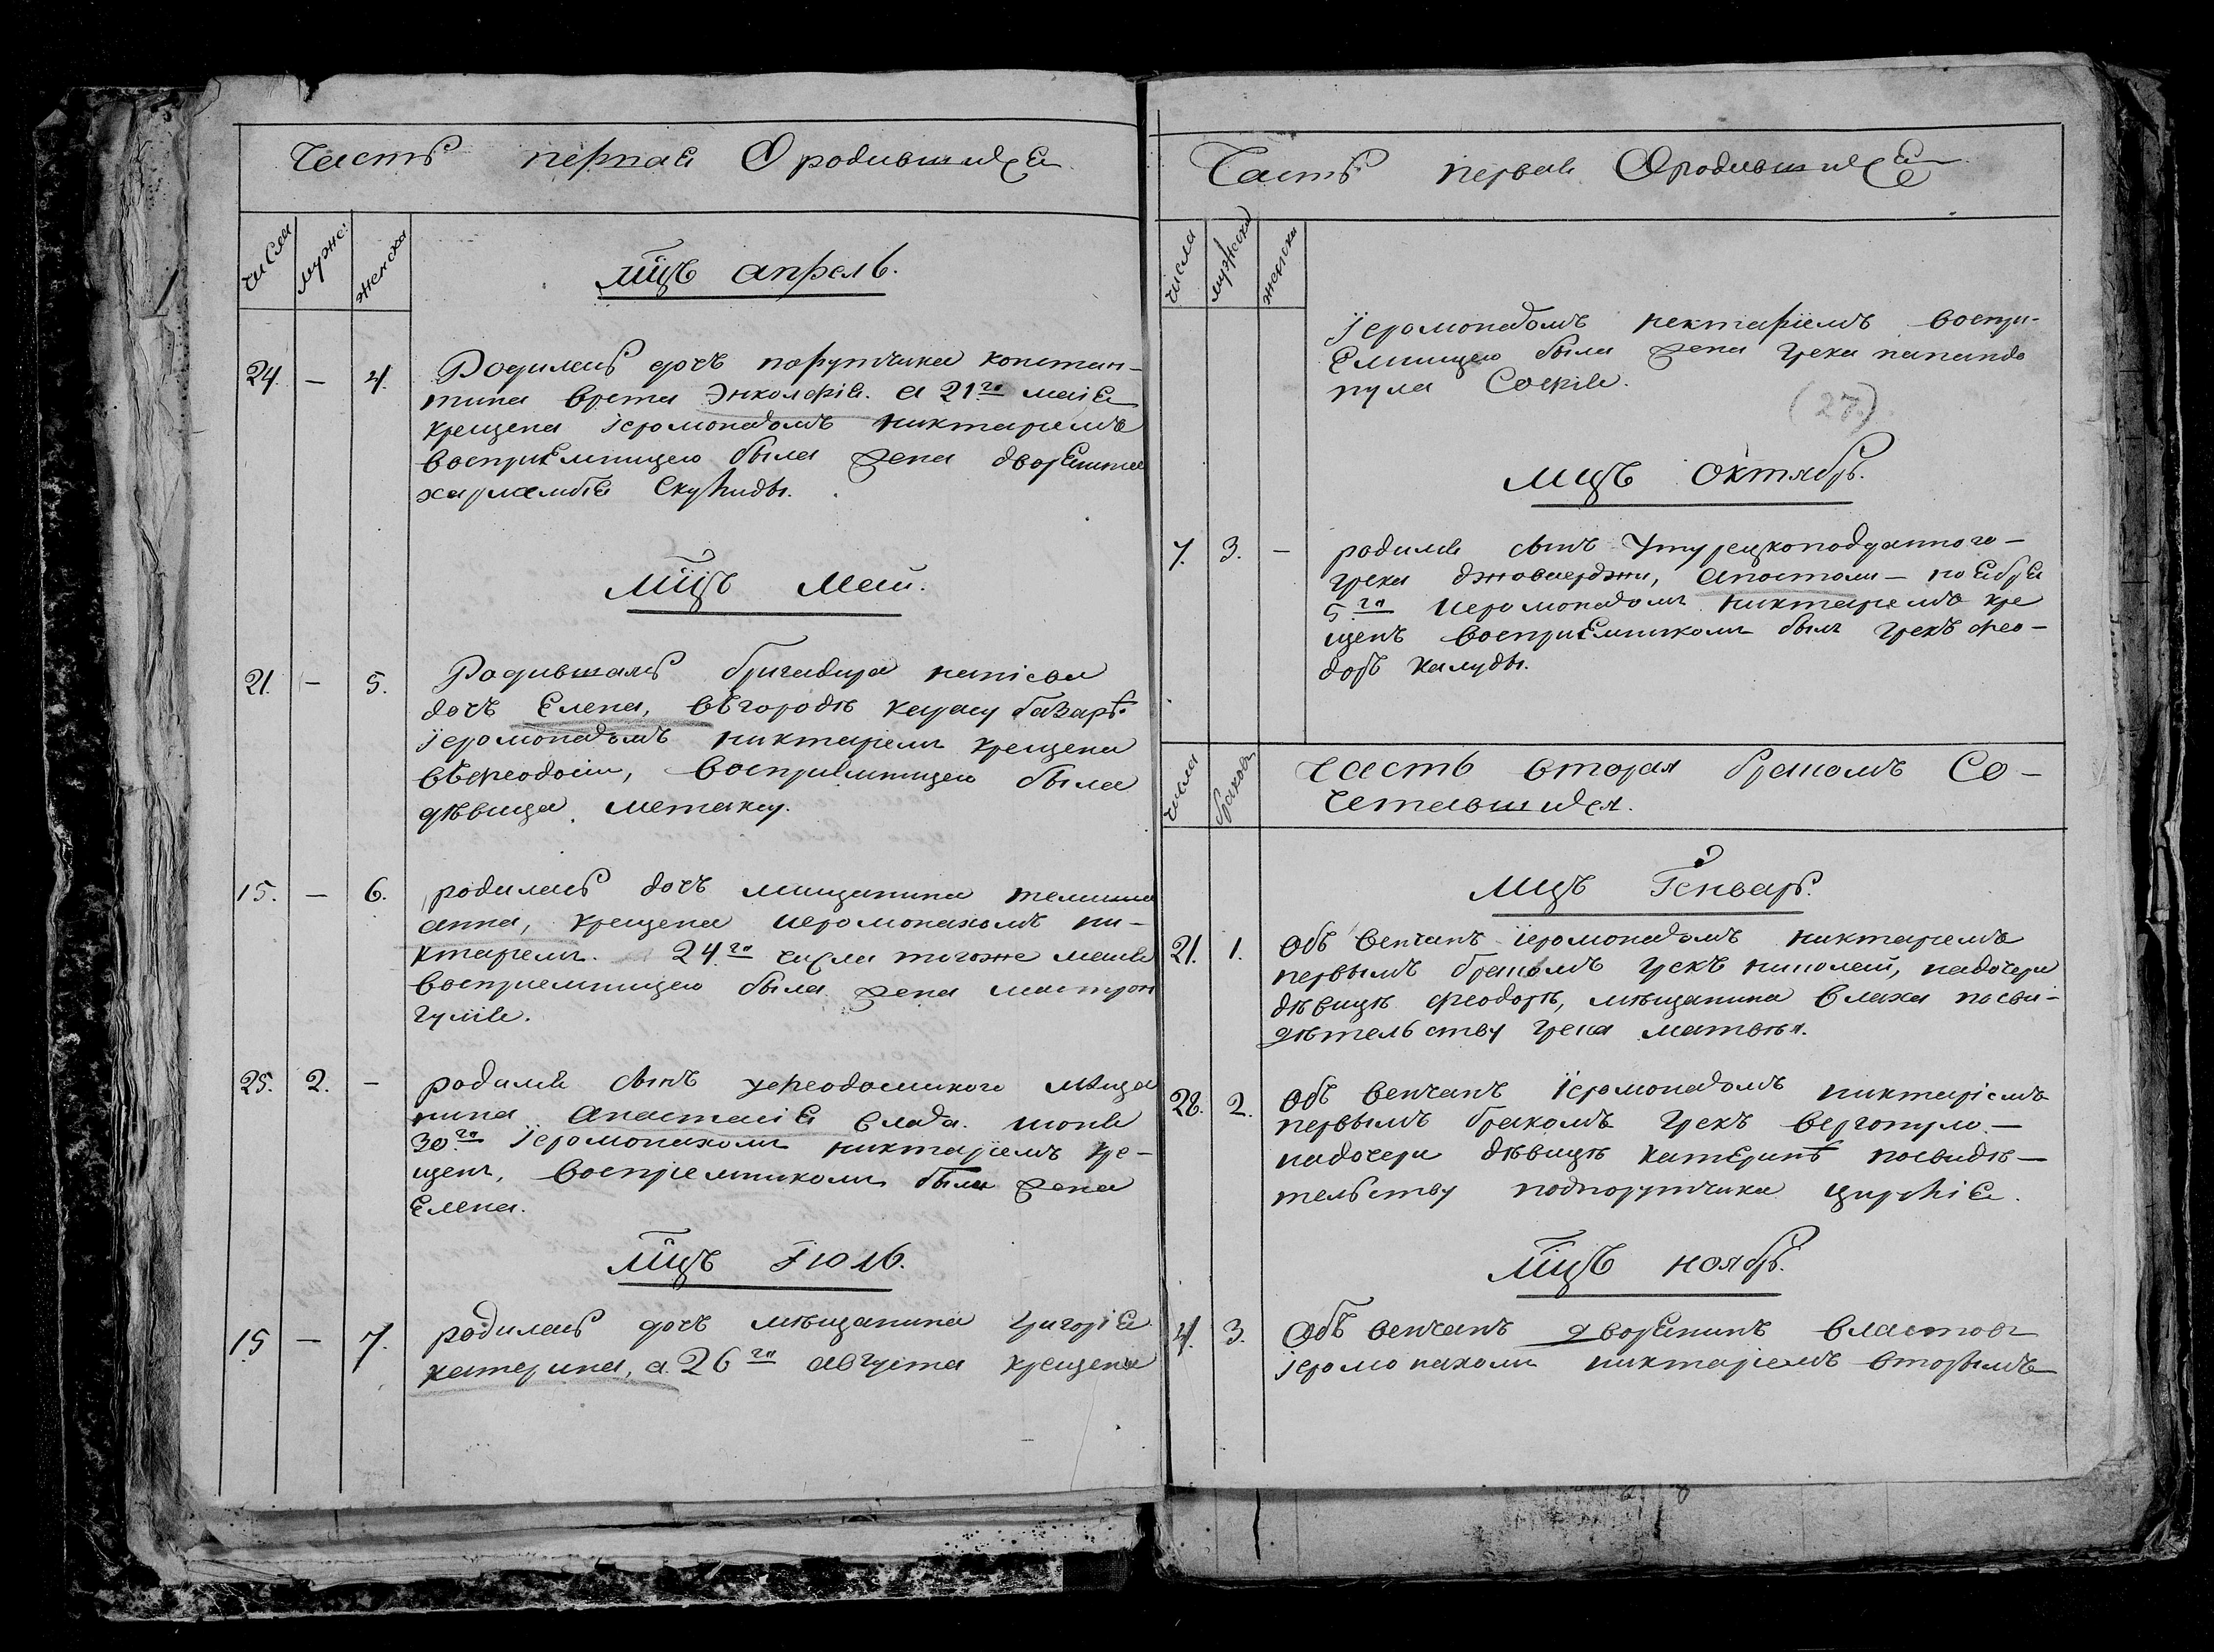 Часть первая О родившихся
числа муже: женска
мцъ апрель.
24. — 4. Родилась дочъ порутчика констан-
тина врета Энколфія. а 21го маія
крещена іеромонахомъ никтарiемъ
восприемницею была жена дворянина
харламбія Скуліиды.
мцъ Маи.
21. — 5. Родившаясь бригадира капісва
дочъ Елена, въгородѣ карасу базарѣ
іеромонахомъ никтаріем крещена
въфеодосіи, восприемницею была
дѣвица метакся.
15. — 6. родилась дочъ мищанина
анна, крещена иеромонахомъ ни-
ктарем. 24го числа тогоже маія
восприемницею была жена мастрон
гулія.
25. 2. — родился сынъ уфеодосискаго мѣща
нина Анастасія влаха. июня
30го іеромонахом никтаріемъ кре-
щен, восприемником была жена
Елена.
мцъ Іюль.
15 — 7. родилась дочъ мѣщанина григорія
катерина, а 26го августа крещена
Часть первая О родившихся
числа мужска женска
іеромонахомъ нектаріемъ воспри-
емницею была жена грека папандо
пула Софія.
(27.)
мцъ Октябрь.
7. 3. — родился сынъ Утурецкоподданного—
грека джоваерджи, Апостоли — ноября
5го иеромонахом никтаріемъ кре
щенъ восприемником был грекъ фео—
доръ калуды.
числа браковъ
Часть вторая бракомъ Со—
четавшихся.
мцъ Генварь.
21. 1. Объ венчанъ іеромонахомъ никтаремъ
первымъ бракомъ грекъ николай, надочери
дѣвицѣ феодорѣ, мѣщанина влаха посви-
дѣтельству грека матвѣя.
28. 2. Объ венчанъ іеромонахомъ никтаріемъ
первымъ бракомъ грекъ вергопуло—
надочери дѣвицѣ катеринѣ посвидѣ—
тельству подпорутчика цирліія.
мцъ ноябрь.
4. 3. Объ венчанъ дворянинъ властов
іеромонахом никтаріемъ вторымъ